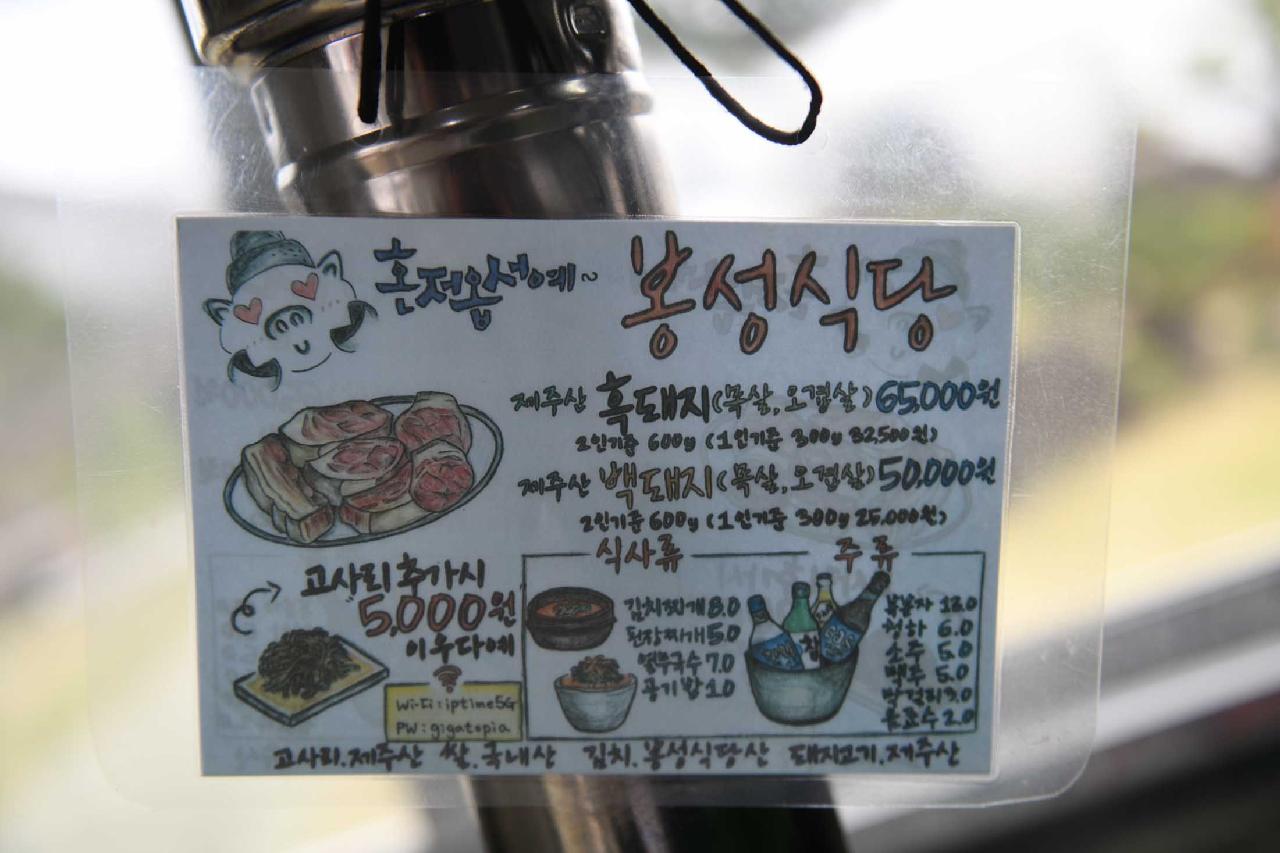 혼저옵서예~
봉성식당
제주산 흑돼지(목살,오겹살)65,000원
2인기준 600g (1인기준 300g 32,500원)
제주산 백돼지(목살,오겹살)50,000원
2인기준 600g (1인기준 300g 25,000원)
고사리 추가시
5,000원
이우다예
Wi-Fi : iptime5G
PW : gigatopia
식사류
김치찌개 8.0
된장찌개 5.0
열무국수 7.0
공기밥 1.0
주류
복분자 12.0
청하 6.0
소주 5.0
맥주 5.0
막걸리 3.0
음료수 2.0
고사리.제주산 쌀.국내산 김치.봉성식당산 돼지고기.제주산